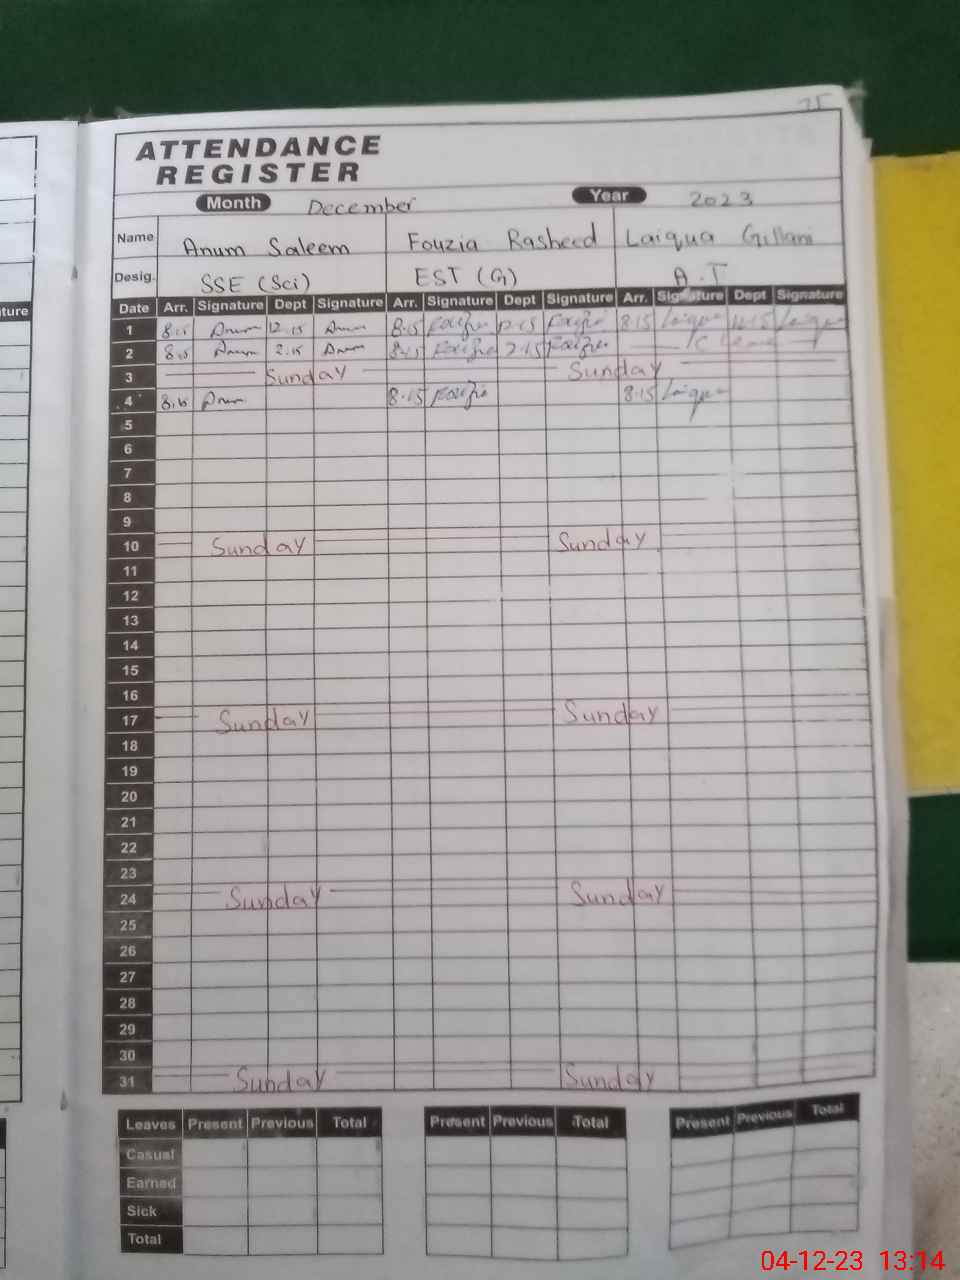 ATTENDANCE
REGISTER
Month December Year 2023
Name Anum Saleem Fouzia Rasheed Laiqua Gillani
Desig. SSE (Sci) EST (G) A.T
ture
Date Arr. Signature Dept Signature Arr. Signature Dept Signature Arr. Signature Dept Signature
1 8.15 Anum 12.15 Anum 8.15 Fouzia 12.15 Fouzia 8.15 Laiqua 12.15 Laiqua
2 8.15 Anum 2.15 Anum 8.15 Fouzia 2.15 Fouzia Leave
3 Sunday Sunday
4 8.15 Anum 8.15 Fouzia 8.15 Laiqua
5
6
7
8
9
10 Sunday Sunday
11
12
13
14
15
16
17 Sunday Sunday
18
19
20
21
22
23
24 Sunday Sunday
25
26
27
28
29
30
31 Sunday Sunday
Leaves Present Previous Total Present Previous Total Present Previous Total
Casual
Earned
Sick
Total
04-12-23 13:14